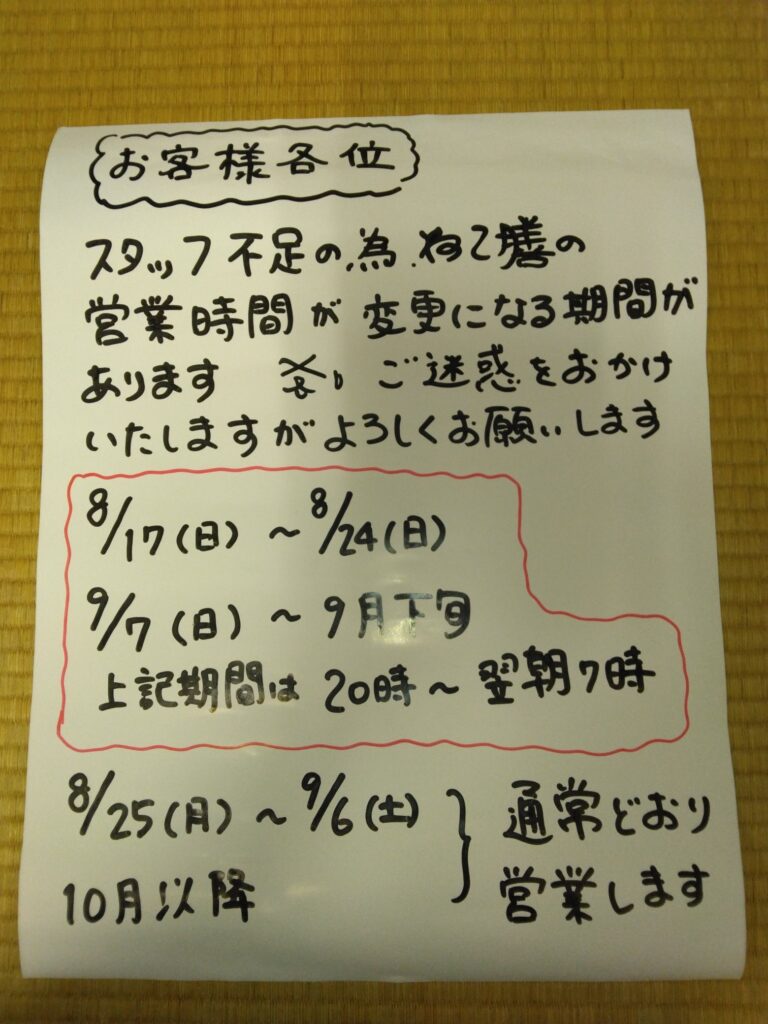 お客様各位
スタッフ不足の為 ねこ膳の
営業時間が変更になる期間が
あります ご迷惑をおかけ
いたしますがよろしくお願いします
8/17(日) ~ 8/24(日)
9/7(日) ~ 9月下旬
上記期間は 20時~翌朝7時
8/25(月) ~ 9/6(土)
10月以降
通常どおり
営業します